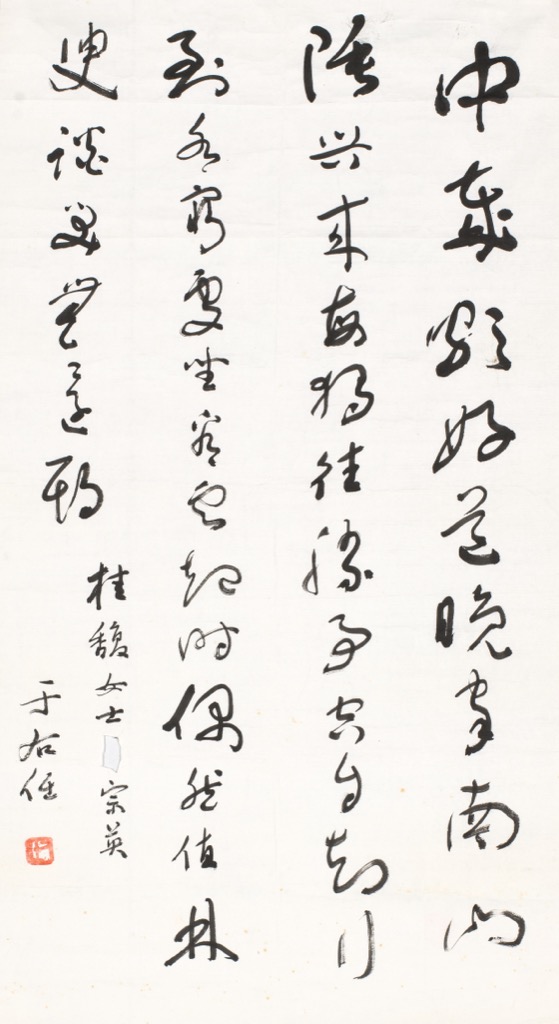 中歲頗好道晚家南山
陲興來每獨往勝事空自知行
到水窮處坐看雲起時偶然值林
叟談笑無還期
桂馥女士 宗英
于右任